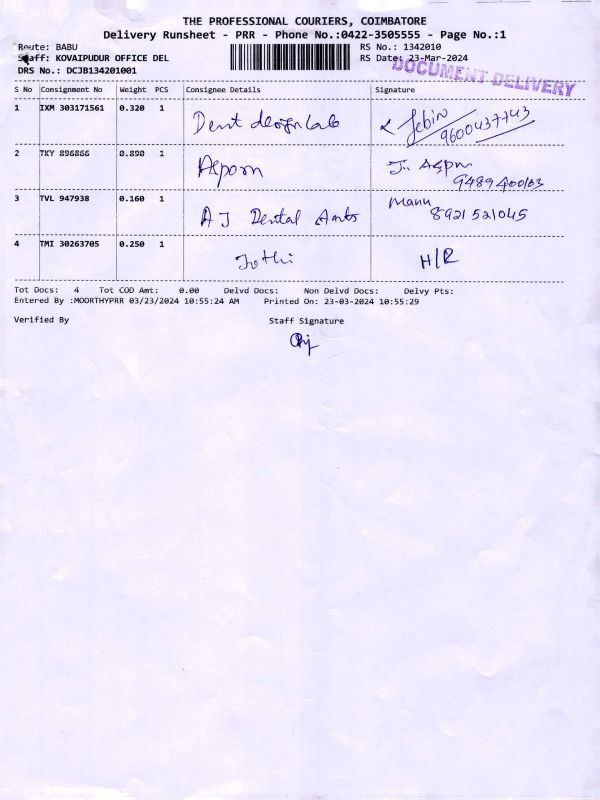 THE PROFESSIONAL COURIERS, COIMBATORE
Delivery Runsheet - PRR - Phone No.:0422-3505555 - Page No.:1
Route: BABU RS No.: 1342010
Staff: KOVAIPUDUR OFFICE DEL RS Date: 23-Mar-2024
DOCUMENT DELIVERY
DRS No.: DCJB134201001
S No Consignment No Weight PCS Consignee Details Signature
1 IXM 303171561 0.320 1 Dent design Lab Jebin
9600437743
2 TKY 896866 0.890 1 Asporn J. Aspn
9489400163
3 TVL 947938 0.160 1 AJ Dental Arts Manu
8921521045
4 TMI 30263705 0.250 1 Jothi H/R
Tot Docs: 4 Tot COD Amt: 0.00 Delvd Docs: Non Delvd Docs: Delvy Pts:
Entered By :MOORTHYPRR 03/23/2024 10:55:24 AM Printed On: 23-03-2024 10:55:29
Verified By Staff Signature